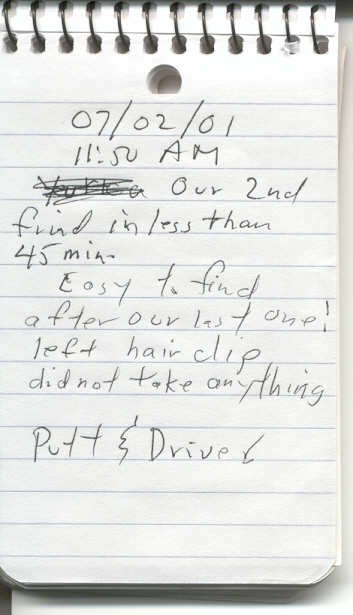 07/02/01
11:50 AM
Our 2nd
find in less than
45 min.
Easy to find
after our last one!
left hair clip
did not take anything
Putt & Driver